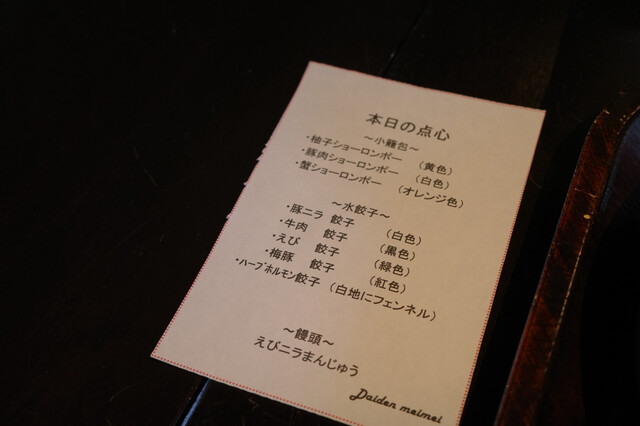 本日の点心
～小籠包～
・柚子ショーロンポー （黄色）
・豚肉ショーロンポー （白色）
・蟹ショーロンポー （オレンジ色）
～水餃子～
・豚ニラ 餃子 （白色）
・牛肉 餃子 （黒色）
・えび 餃子 （緑色）
・梅豚 餃子 （紅色）
・ハーブホルモン餃子 （白地にフェンネル）
～饅頭～
えびニラまんじゅう
Daiden meimei